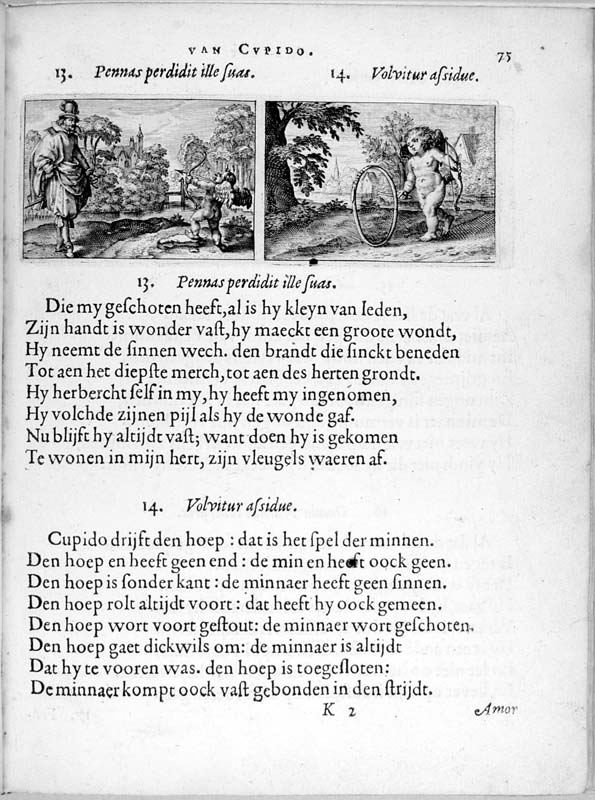 VAN CVPIDO. 75
13. Pennas perdidit ille suas. 14. Volvitur assidue.
13. Pennas perdidit ille suas.
Die my geschoten heeft, al is hy kleyn van leden,
Zijn handt is wonder vast, hy maeckt een groote wondt,
Hy neemt de sinnen wech. den brandt die sinckt beneden
Tot aen het diepste merch, tot aen des herten grondt.
Hy herbercht self in my, hy heeft my ingenomen,
Hy volchde zijnen pijl als hy de wonde gaf.
Nu blijft hy altijdt vast; want doen hy is gekomen
Te wonen in mijn hert, zijn vleugels waeren af.
14. Volvitur assidue.
Cupido drijft den hoep : dat is het spel der minnen.
Den hoep en heeft geen end : de min en heeft oock geen.
Den hoep is sonder kant : de minnaer heeft geen sinnen.
Den hoep rolt altijdt voort : dat heeft hy oock gemeen.
Den hoep wort voort gestout: de minnaer wort geschoten.
Den hoep gaet dickwils om: de minnaer is altijdt
Dat hy te vooren was. den hoep is toegesloten:
De minnaer kompt oock vast gebonden in den strijdt.
K 2 Amor